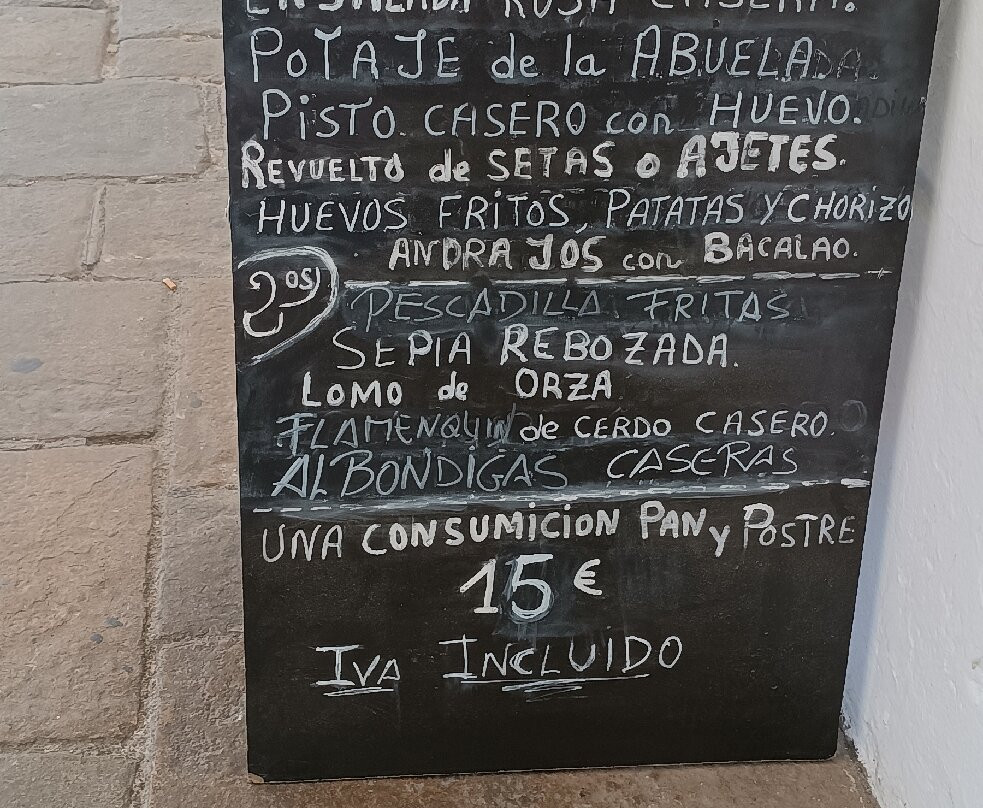 ENSALADA RUSA CASERA.
POTAJE de la ABUELA
PISTO CASERO con HUEVO.
REVUELTO de SETAS o AJETES.
HUEVOS FRITOS, PATATAS Y CHORIZO
ANDRAJOS con BACALAO.
2os PESCADILLA FRITAS
SEPIA REBOZADA.
LOMO de ORZA
FLAMENQUIN de CERDO CASERO.
ALBONDIGAS CASERAS
UNA CONSUMICION PAN y POSTRE
15 €
IVA INCLUIDO